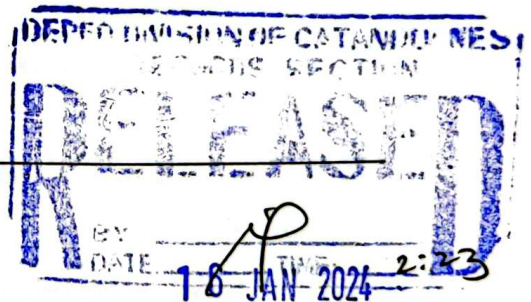 DEPED DIVISION OF CATANDUANES
RECORDS SECTION
RELEASED
BY
DATE 16 JAN 2024 TIME 2:23